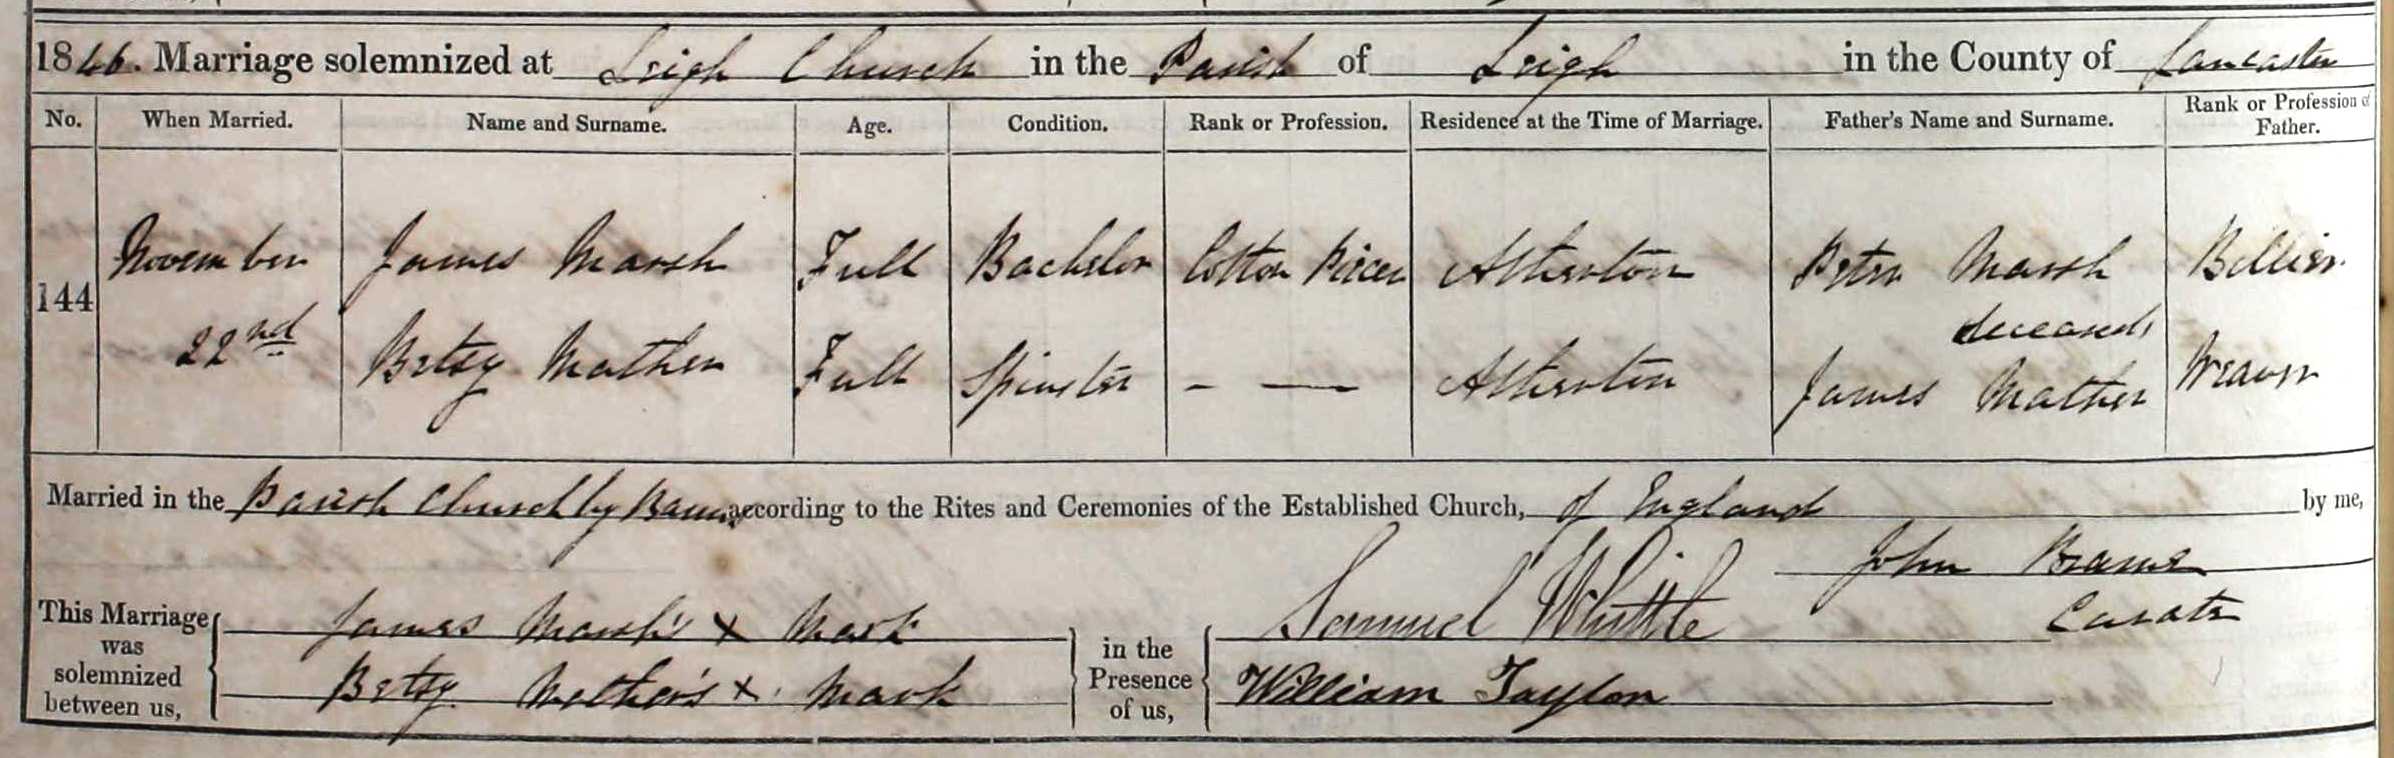 1846. Marriage solemnized at Leigh Church in the Parish of Leigh in the County of Lancaster
No. When Married. Name and Surname. Age. Condition. Rank or Profession. Residence at the Time of Marriage. Father's Name and Surname. Rank or Profession of Father.
November James Marsh Full Bachelor Cotton Piecer Atherton Peter Marsh
144
deceased,
22nd Betsy Mather Full Spinster - — Atherton James Mather Weaver
Married in the Parish Church by Banns according to the Rites and Ceremonies of the Established Church, of England by me,
John
Curate
This Marriage was solemnized between us,
James Marsh's x Mark
Betsy Mather's x Mark
in the Presence of us,
Samuel Whittle
William Taylor